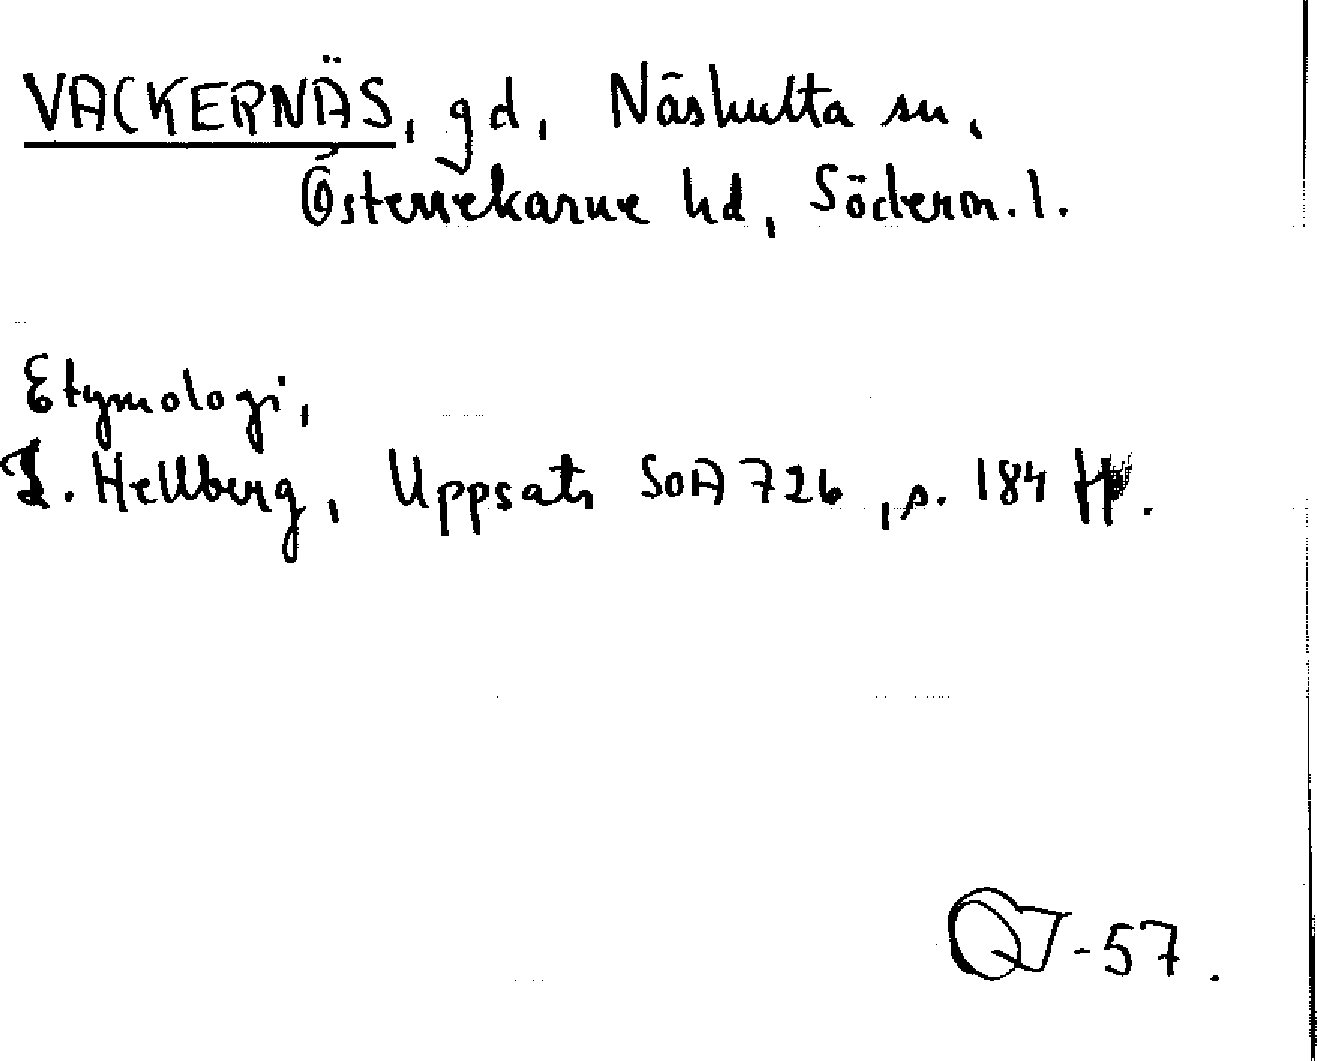 VACKERNÄS, gd, Näshulta sn,
Österrekarne hd, Söderm. l.
Etymologi,
L. Hellberg, Uppsats SOA 726, s. 184
-57.